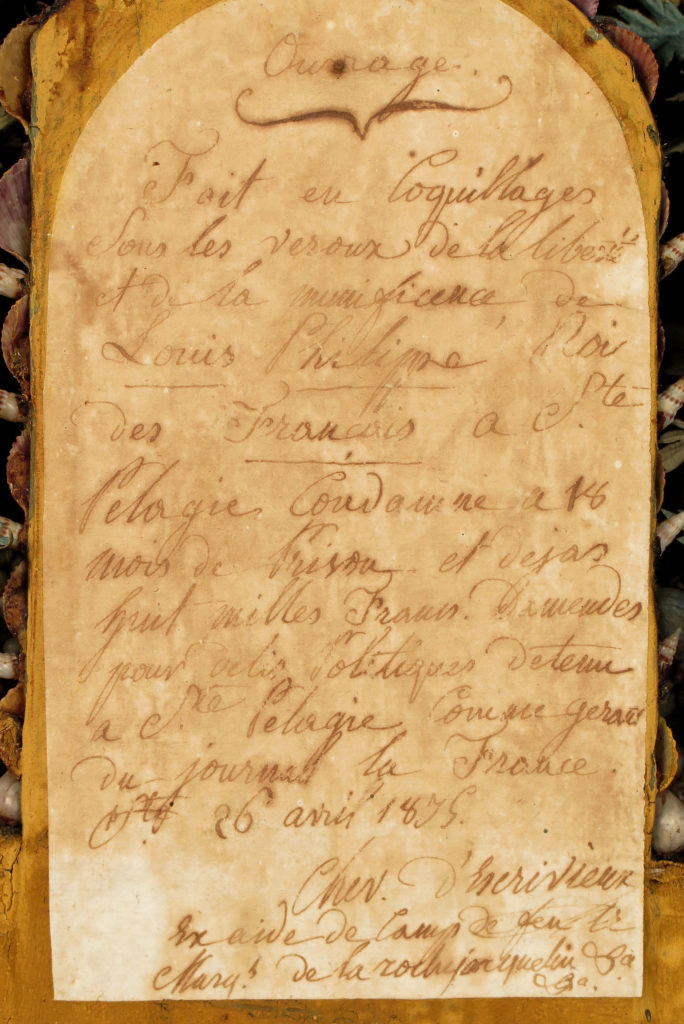 Ouvrage.
Fait en Coquillages
Sous les veroux de la liberté
et de la munificence de
Louis Philippe Roi
des Francais a S.te
Pelagie Condamne a 18
mois de Prison et dejas
huit milles Francs. Damendes
pour delis Politiques detenu
a S.te Pelagie Comme gerant
du journal la France.
26 avril 1835.
Chev. d'Escrivieux
Ex aide de Camp de feu le
Marq.s de la rochejacquelin &a
&a.